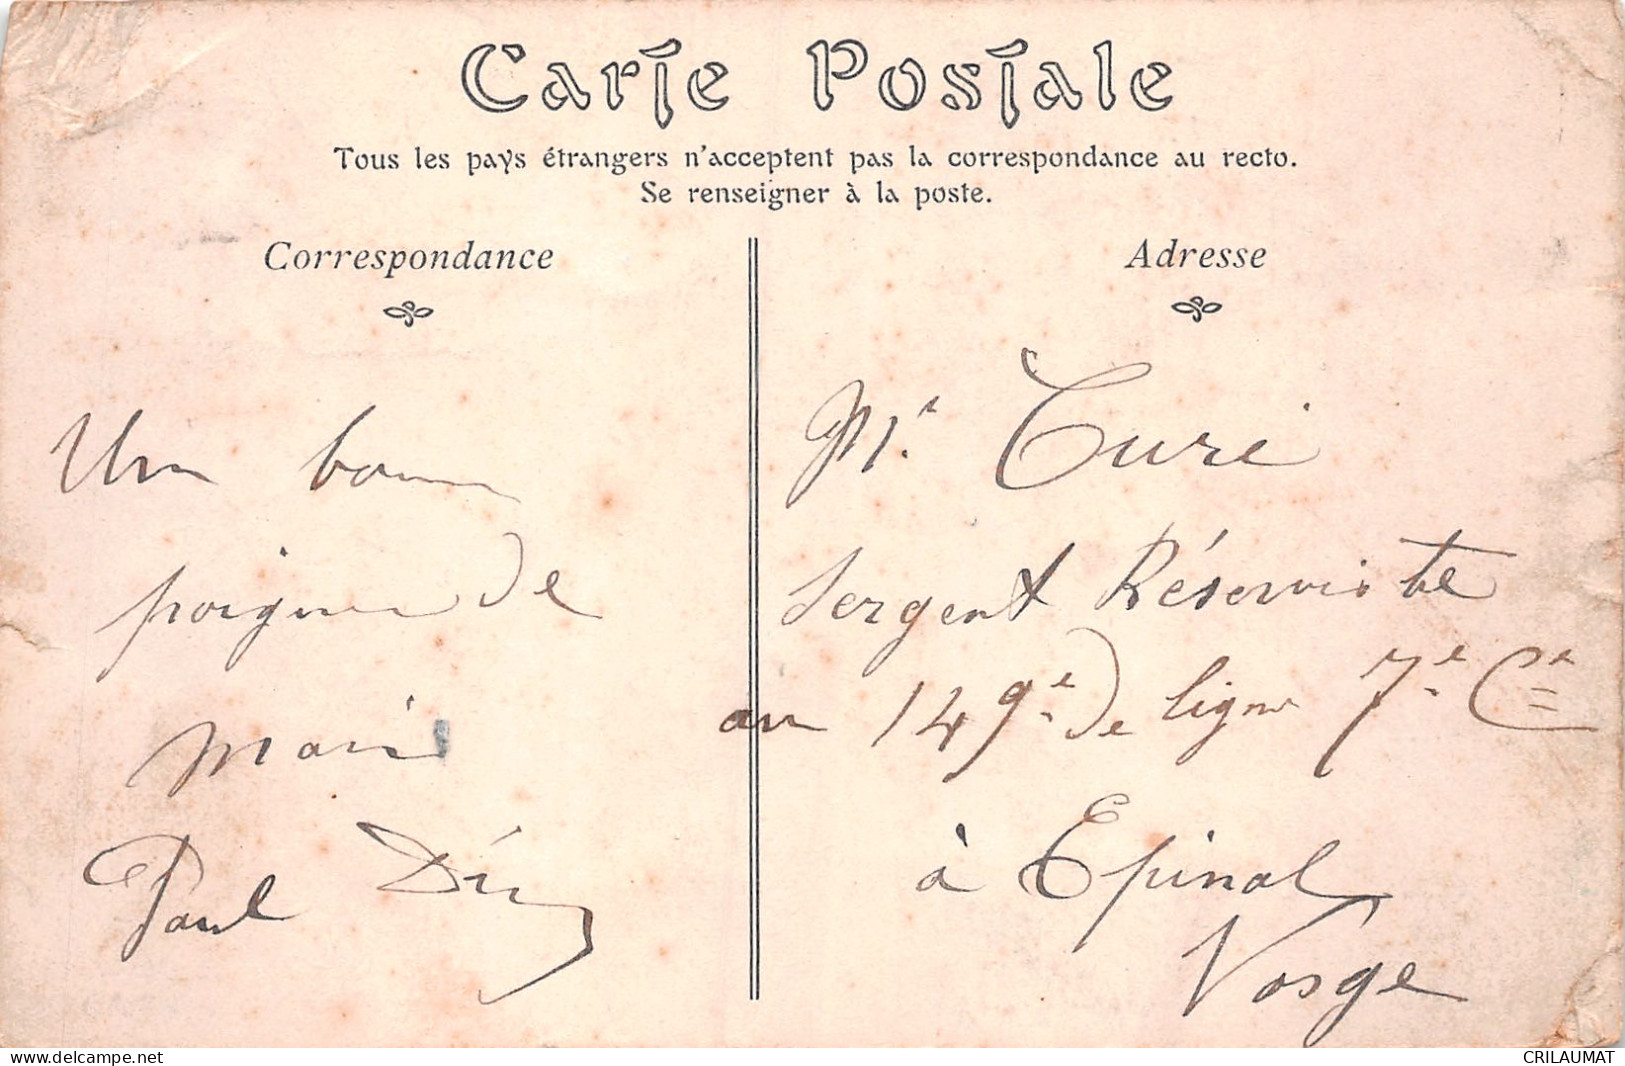 Carte Postale
Tous les pays étrangers n'acceptent pas la correspondance au recto.
Se renseigner à la poste.
Correspondance
Un bonne
poignee de
main
Paul
Adresse
Mr. Turi
Sergent Réserviste
au 149e. de ligne 7e. Cie
à Epinal
Vosge
delcampe.net
CRILAUMAT